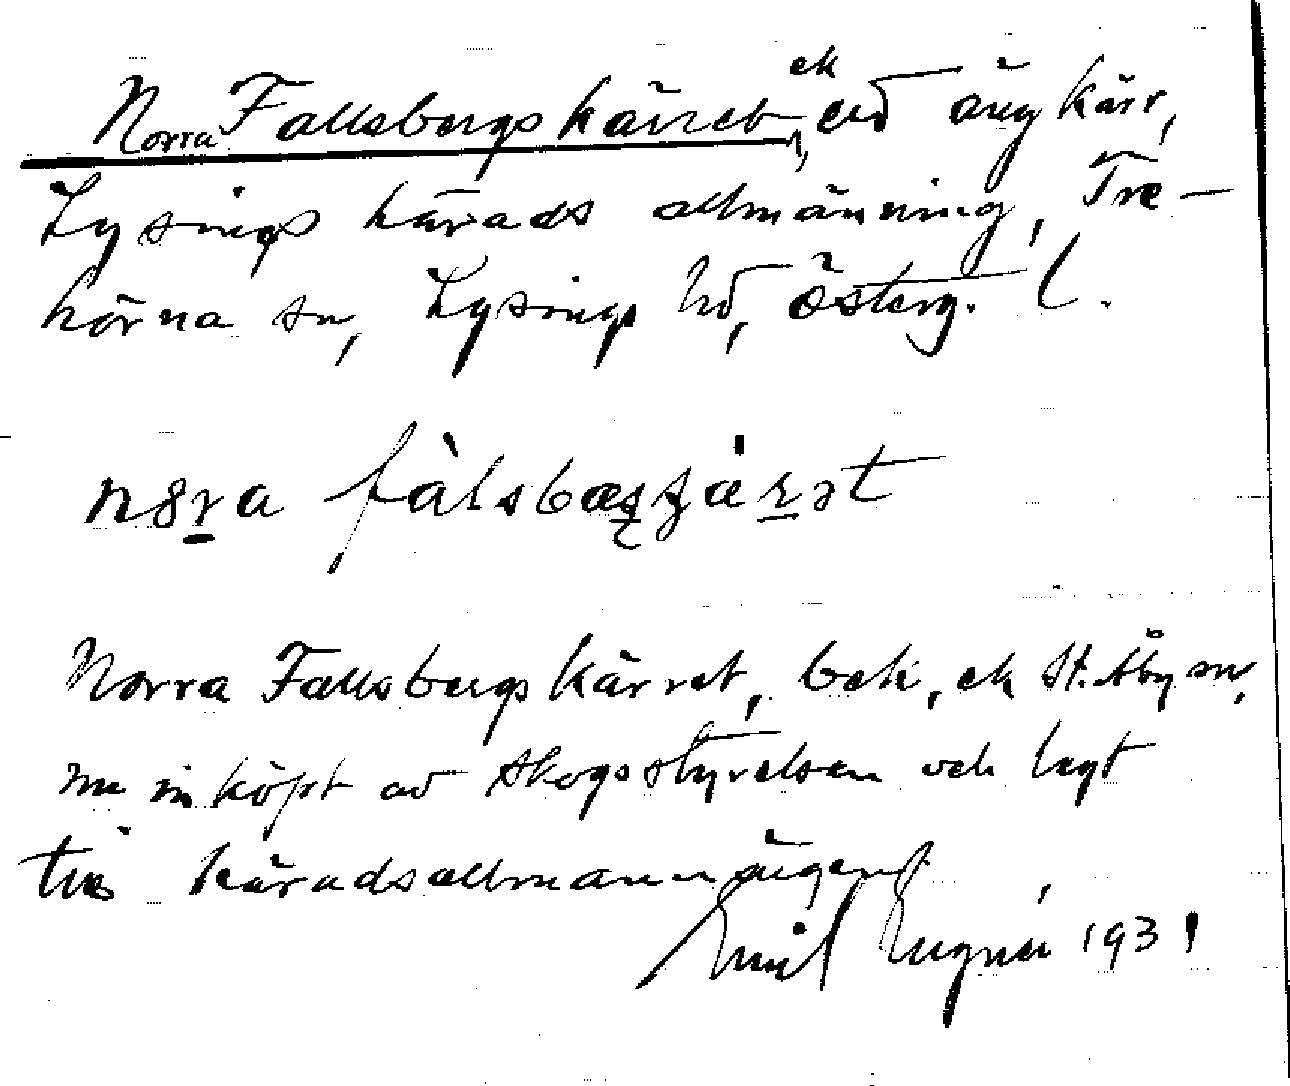 Norra Fallsbergskärret, ek vid äng kärr,
Lysings härads allmänning, Tre-
hörna sn, Lysings hd, Österg. l.
Norra Fallsbergskärret, bek, ek St. Åby sn,
nu inköpt av skogsstyrelsen och lagt
till häradsallmänningen
Emil 1931